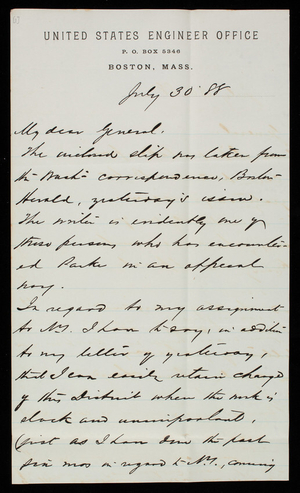 UNITED STATES ENGINEER OFFICE
P. O. BOX 5346
BOSTON, MASS.
July 30 88
My dear General.
The enclosed slip was taken from
the Wash- correspondence, Boston
Herald, yesterday's issue.
The writer is evidently one of
those persons who has encounter-
ed Parke in an official
way.
In regard to my assignment
to N.Y. I have to say, in addition
to my letter of yesterday,
that I can easily retain charge
of this District where the work is
slack and unimportant,
just as I have done the past
six mos in regard to N.Y., coming